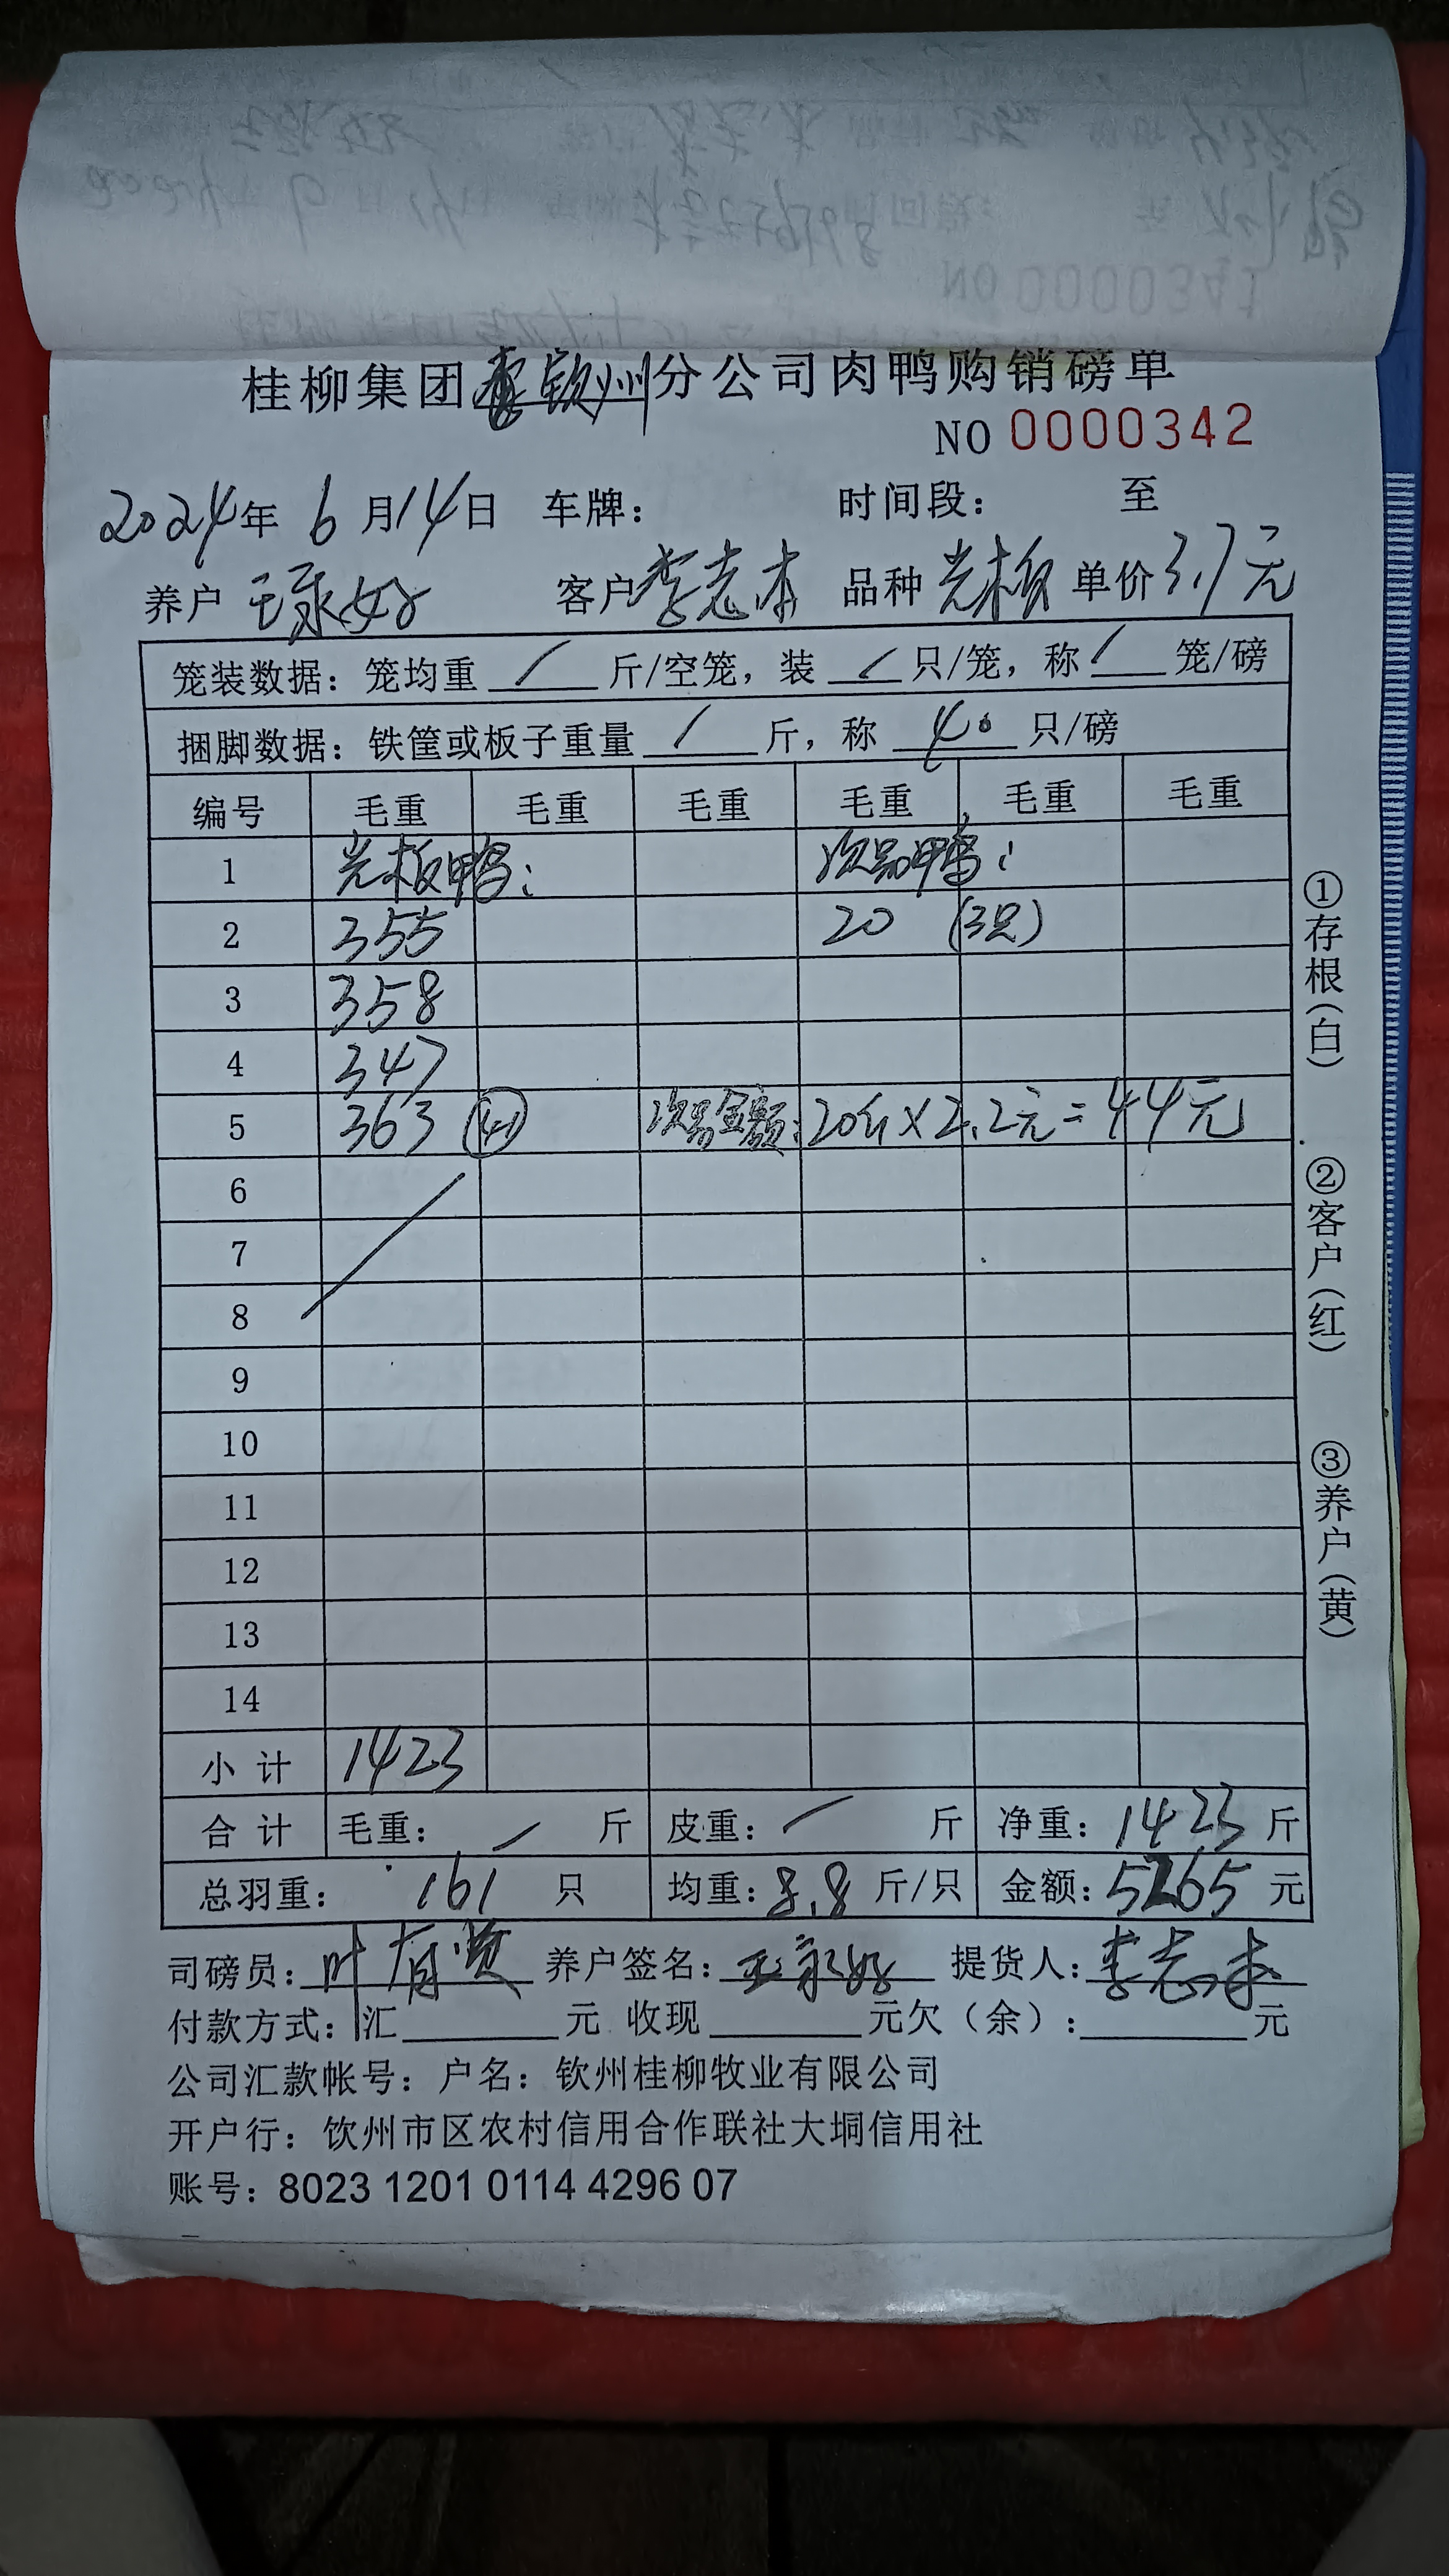 NO 0000341
桂柳集团钦州分公司肉鸭购销磅单
NO 0000342
2024年 6月14日 车牌: 时间段: 至
养户 王家好 客户 李志本 品种 光板 单价 3.7元
笼装数据: 笼均重 / 斤/空笼, 装 / 只/笼, 称 / 笼/磅
捆脚数据: 铁筐或板子重量 / 斤, 称 40 只/磅
编号 毛重 毛重 毛重 毛重 毛重 毛重
1 光板鸭: 次品鸭:
2 355 20 (3只)
3 358
4 347
5 363 (41) 次品金额: 20斤×2.2元=44元
6
7
8
9
10
11
12
13
14
小计 1423
合计 毛重: / 斤 皮重: / 斤 净重: 1423 斤
总羽重: 161 只 均重: 8.8 斤/只 金额: 5265 元
司磅员: 叶有贤 养户签名: 王家好 提货人: 李志本
付款方式: 汇 元 收现 元欠(余): 元
公司汇款帐号: 户名: 钦州桂柳牧业有限公司
开户行: 钦州市区农村信用合作联社大垌信用社
账号: 8023 1201 0114 4296 07
①存根(白)
②客户(红)
③养户(黄)